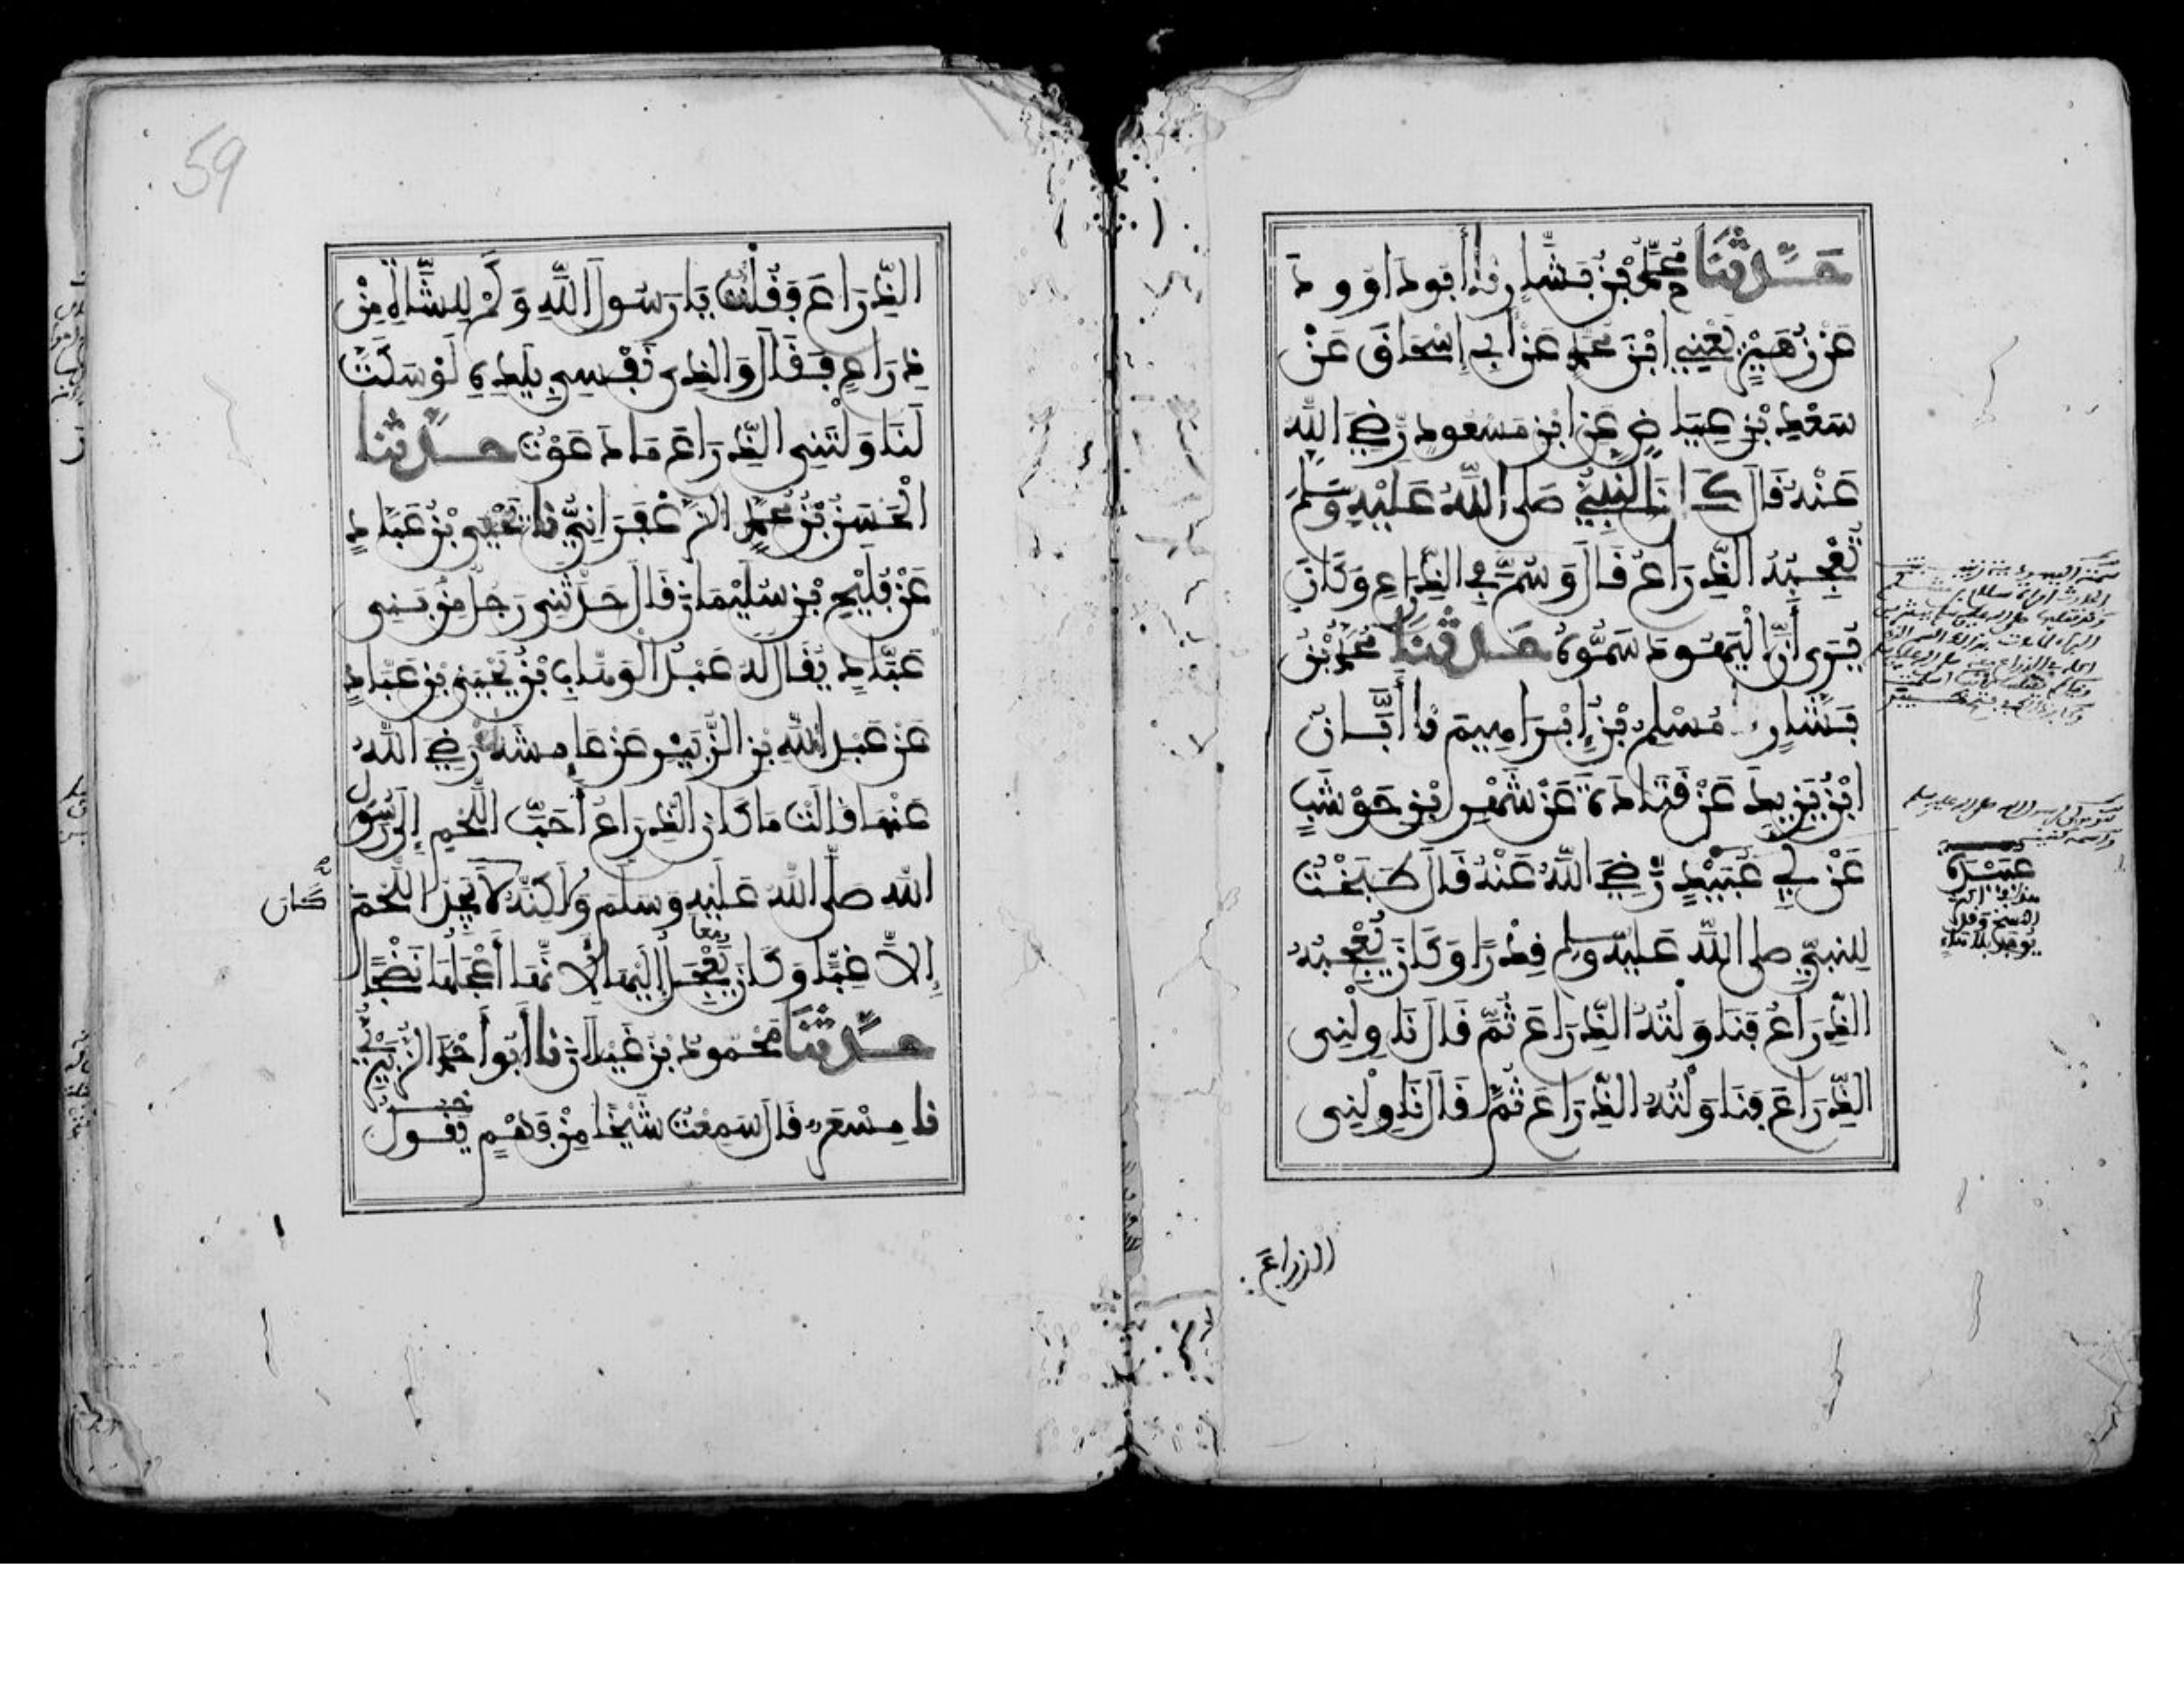 حَدَّثَنَا مُحَمَّدُ بْنُ بَشَّارٍ نا أَبُو دَاوُودَ
عَنْ زُهَيْرٍ يَعْنِي ابْنَ مُحَمَّدٍ عَنْ أَبِي إِسْحَاقَ عَنْ
سَعْدِ بْنِ عِيَاضٍ عَنِ ابْنِ مَسْعُودٍ رَضِيَ اللَّهُ
عَنْهُ قَالَ كَانَ النَّبِيُّ صَلَّى اللَّهُ عَلَيْهِ وَسَلَّمَ
يُعْجِبُهُ الذِّرَاعُ قَالَ وَسُمَّ فِي الذِّرَاعِ وَكَانَ
يُرَى أَنَّ الْيَهُودَ سَمُّوهُ حَدَّثَنَا مُحَمَّدُ بْنُ
بَشَّارٍ مُسْلِمُ بْنُ إِبْرَاهِيمَ نا أَبَّانُ
ابْنُ يَزِيدَ عَنْ قَتَادَةَ عَنْ شَهْرِ ابْنِ حَوْشَبٍ
عَنْ أَبِي عُبَيْدٍ رَضِيَ اللَّهُ عَنْهُ قَالَ طَبَخْتُ
لِلنَّبِيِّ صَلَّى اللَّهُ عَلَيْهِ وَسَلَّمَ قِدْرًا وَكَانَ يُعْجِبُهُ
الذِّرَاعُ فَنَاوَلْتُهُ الذِّرَاعَ ثُمَّ قَالَ نَاوِلْنِي
الذِّرَاعَ فَنَاوَلْتُهُ الذِّرَاعَ ثُمَّ قَالَ نَاوِلْنِي
الذراعَ
59
الذِّرَاعَ فَقُلْتُ يَا رَسُولَ اللَّهِ وَكَمْ لِلشَّاةِ مِنْ
ذِرَاعٍ فَقَالَ وَالَّذِي نَفْسِي بِيَدِهِ لَوْ سَكَتَّ
لَنَاوَلْتَنِي الذِّرَاعَ مَا دَعَوْتُ حَدَّثَنَا
الْحَسَنُ بْنُ مُحَمَّدٍ الزَّعْفَرَانِيُّ نا يَحْيَى بْنُ عَبَّادٍ
عَنْ فُلَيْحِ بْنِ سُلَيْمَانَ قَالَ حَدَّثَنِي رَجُلٌ مِنْ بَنِي
عَبَّادٍ يُقَالُ لَهُ عَبْدُ الْوَهَّابِ بْنُ يَحْيَى بْنِ عَبَّادٍ
عَنْ عَبْدِ اللَّهِ بْنِ الزُّبَيْرِ عَنْ عَائِشَةَ رَضِيَ اللَّهُ
عَنْهَا قَالَتْ مَا كَانَ الذِّرَاعُ أَحَبَّ اللَّحْمِ إِلَى رَسُولِ
اللَّهِ صَلَّى اللَّهُ عَلَيْهِ وَسَلَّمَ وَلَكِنَّهُ لَا يَجِدُ اللَّحْمَ
كان
إِلَّا غِبًّا وَكَانَ يَعْجَلُ إِلَيْهَا لِأَنَّهَا أَعْجَلُهَا نَضْجًا
حَدَّثَنَا مَحْمُودُ بْنُ غَيْلَانَ نا أَبُو أَحْمَدَ الزُّبَيْرِيُّ
نا مِسْعَرٌ قَالَ سَمِعْتُ شَيْخًا مِنْ فَهْمٍ يَقُولُ